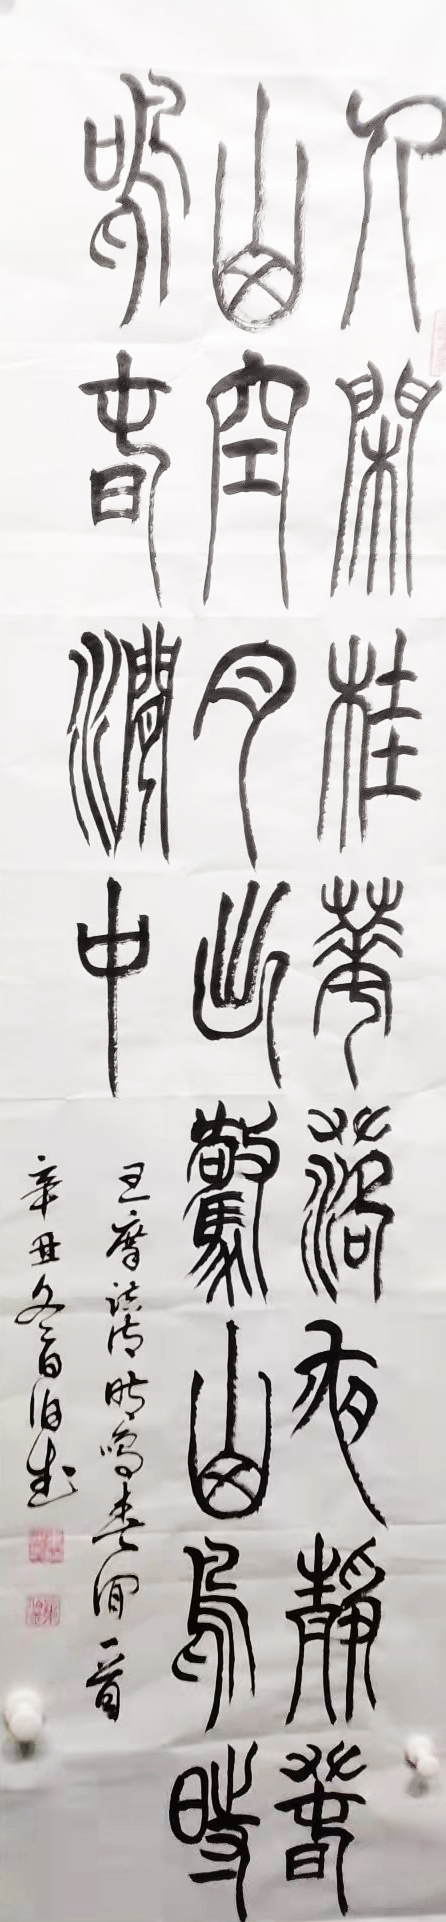 人閑桂華落夜靜春
山空月出驚山鳥時
鳴春澗中
王摩詰詩時鳴春澗一首
辛丑冬